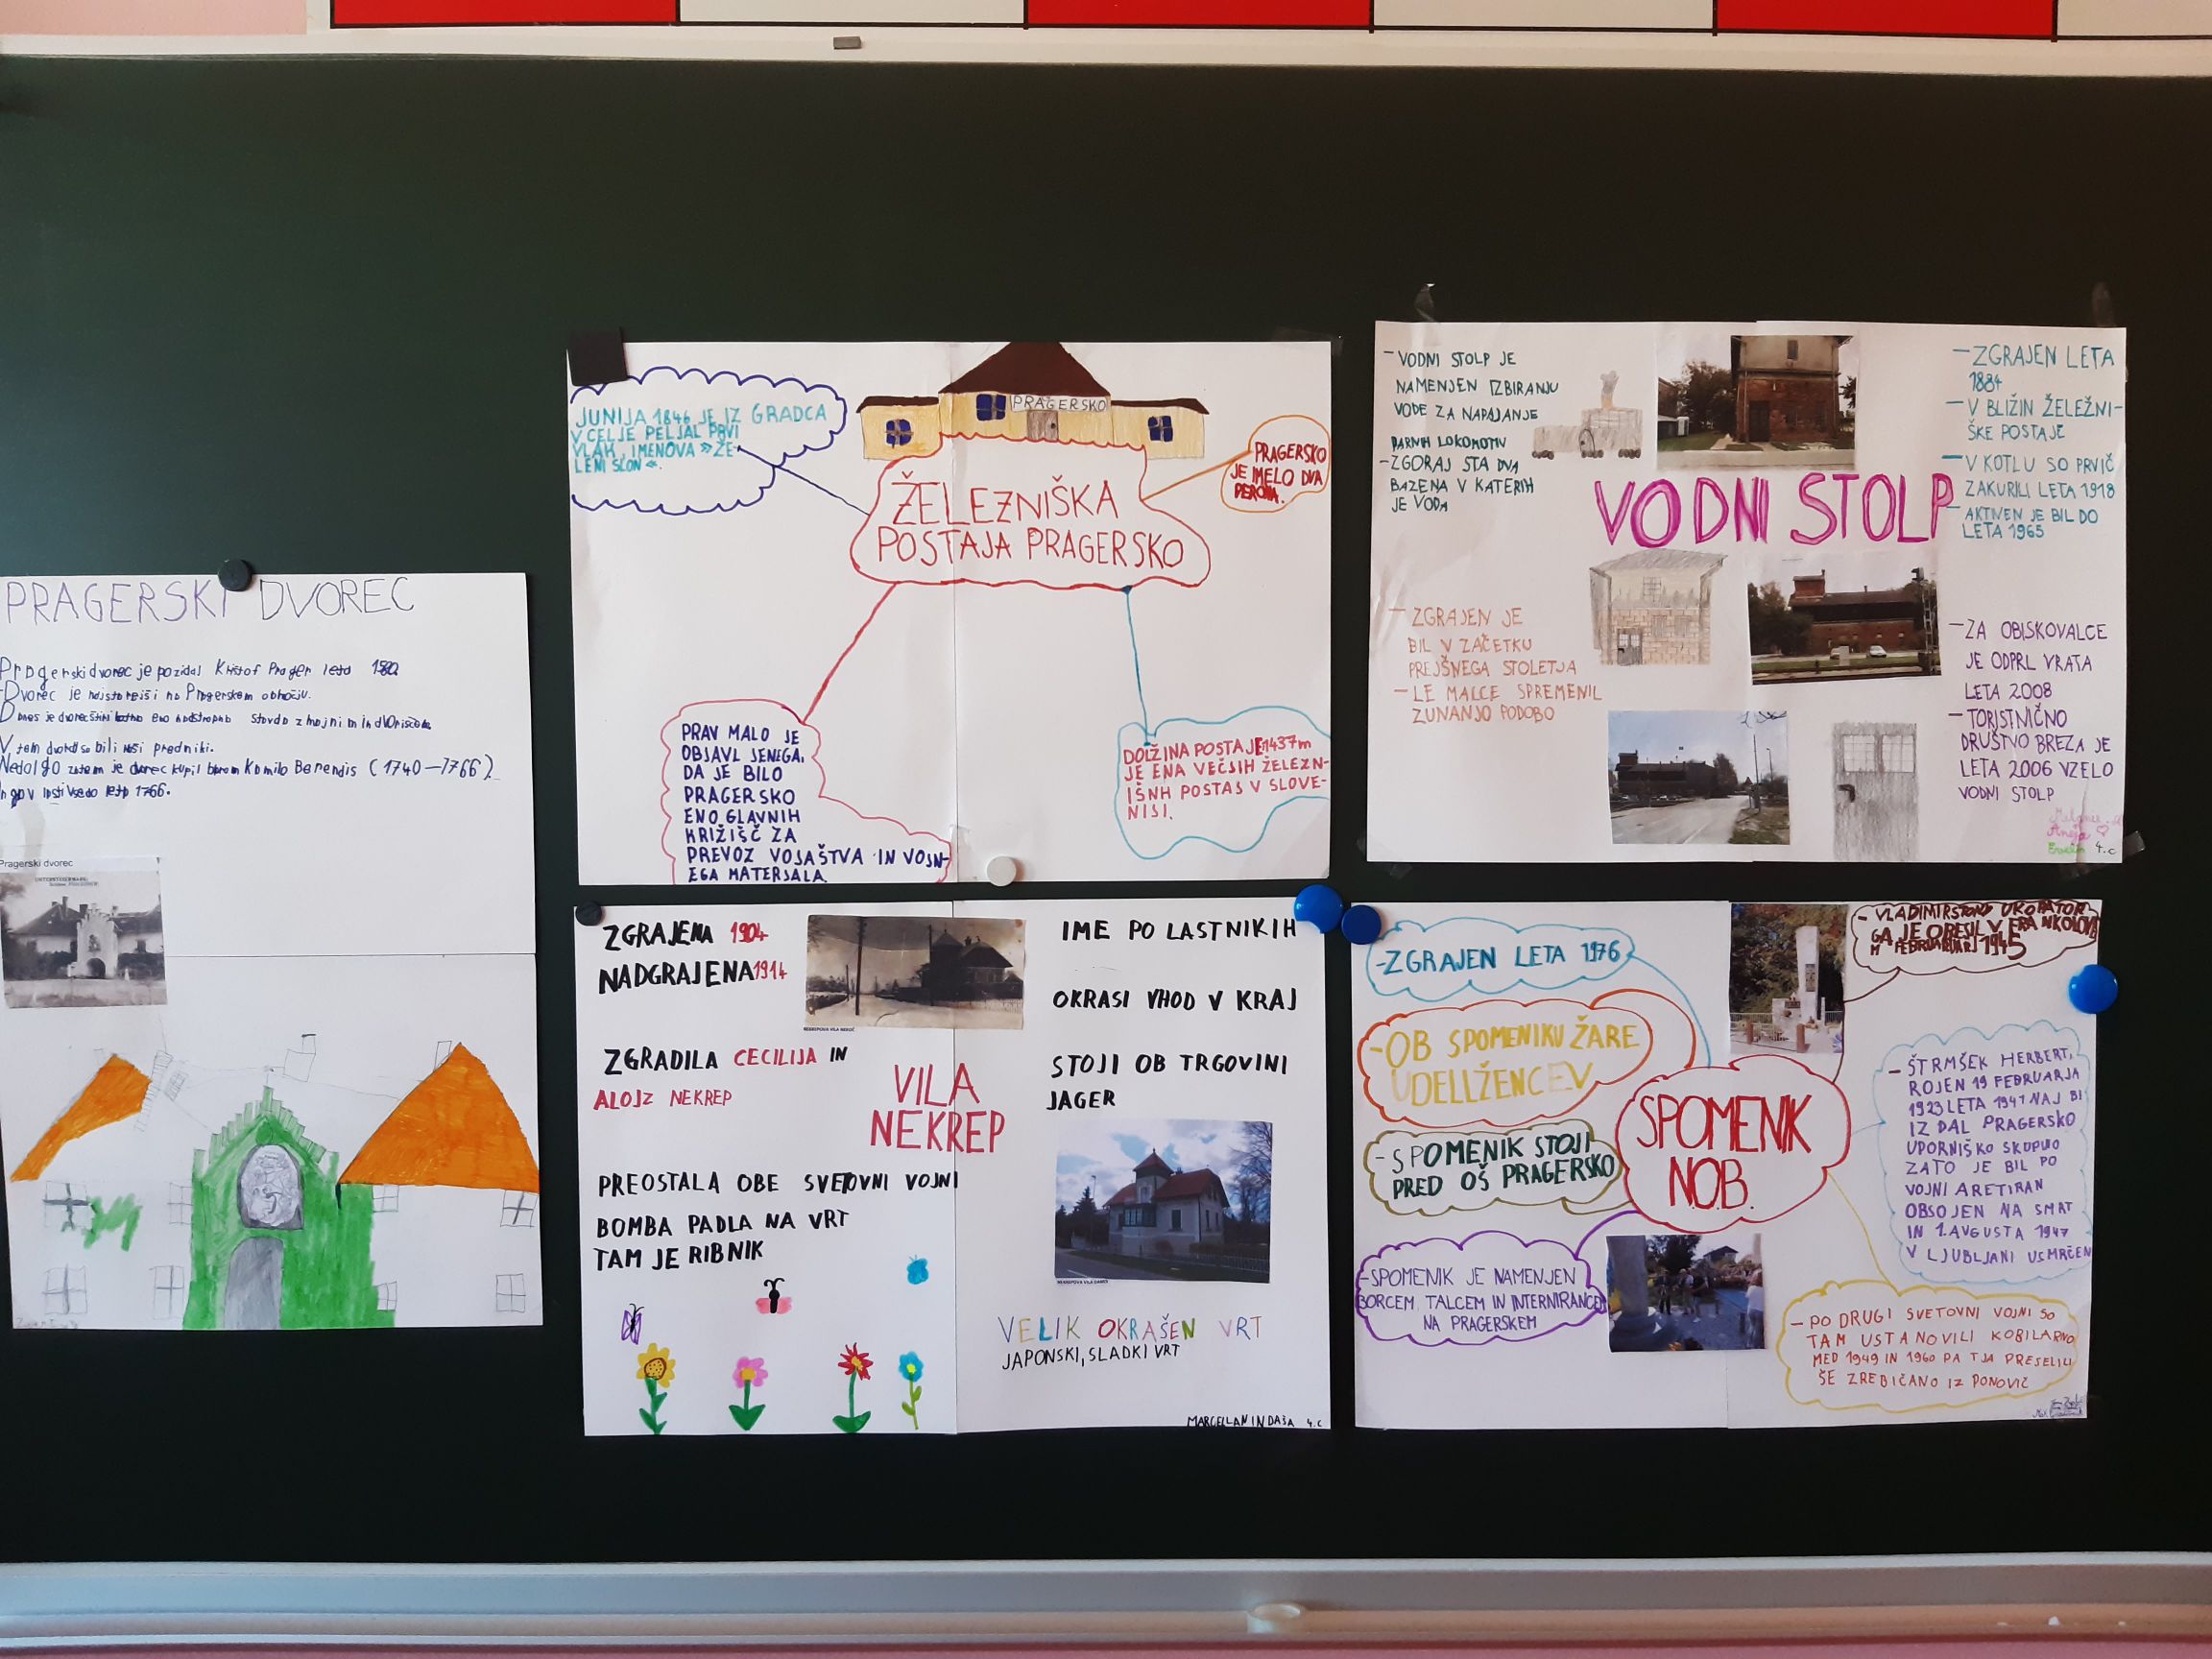 PRAGERSKI DVOREC
Pragerski dvorec je pozidal Krištof Prager leta
Dvorec je najstarejši na Pragerskem območju.
Danes je
V tem so bili naši predniki.
Nedolgo zatem je dvorec kupil baron Kamilo Berendis (1740-1766).
vse do leta 1766.
Pragerski dvorec
JUNIJA 1846 JE IZ GRADCA
V CELJE PELJAL PRVI
VLAK, IMENOVA »ZE-
LENI SLON«.
PRAGERSKO
PRAGERSKO
JE IMELO DVA
PERONA.
ŽELEZNIŠKA
POSTAJA PRAGERSKO
PRAV MALO JE
OBJAVL JENEGA,
DA JE BILO
PRAGERSKO
ENO GLAVNIH
KRIŽIŠČ ZA
PREVOZ VOJAŠTVA IN VOJN-
EGA MATERJALA.
DOLŽINA POSTAJE 1437m
JE ENA VEČJIH ŽELEZN-
IŠNH POSTAJ V SLOVE-
NIJI.
- VODNI STOLP JE
NAMENJEN IZBIRANJU
VODE ZA NAPAJANJE
PARNIH LOKOMOTIV
- ZGORAJ STA DVA
BAZENA V KATERIH
JE VODA
- ZGRAJEN LETA
1884
- V BLIŽIN ŽELEZNI-
ŠKE POSTAJE
- V KOTLU SO PRVIČ
ZAKURILI LETA 1918
- AKTIVEN JE BIL DO
LETA 1965
VODNI STOLP
- ZGRAJEN JE
BIL V ZAČETKU
PREJŠNEGA STOLETJA
- LE MALCE SPREMENIL
ZUNANJO PODOBO
- ZA OBISKOVALCE
JE ODPRL VRATA
LETA 2008
- TORJSTNIČNO
DRUŠTVO BREZA JE
LETA 2006 VZELO
VODNI STOLP
Aneja
4.c
ZGRAJENA 1904
NADGRAJENA 1914
ZGRADILA CECILIJA IN
ALOJZ NEKREP
VILA
NEKREP
PREOSTALA OBE SVETOVNI VOJNI
BOMBA PADLA NA VRT
TAM JE RIBNIK
IME PO LASTNIKIH
OKRASI VHOD V KRAJ
STOJI OB TRGOVINI
JAGER
NEKREPOVA VILA DANES
VELIK OKRAŠEN VRT
JAPONSKI, SLADKI VRT
MARCELLAN IN DAŠA 4.c
- ZGRAJEN LETA 1976
- OB SPOMENIKU ŽARE
UDELLŽENCEV
- SPOMENIK STOJI
PRED OŠ PRAGERSKO
- SPOMENIK JE NAMENJEN
BORCEM, TALCEM IN INTERNIRANCEM
NA PRAGERSKEM
SPOMENIK
N.O.B.
GA JE OBESIL V
FEBRUARJ 1945
- ŠTRMŠEK HERBERT,
ROJEN 19 FEBRUARJA
1923 LETA 1941 NAJ BI
IZ DAL PRAGERSKO
UPORNIŠKO SKUPIJO
ZATO JE BIL PO
VOJNI ARETIRAN
OBSOJEN NA SMRT
IN 1. AVGUSTA 1947
V LJUBLJANI USMRČEN
- PO DRUGI SVETOVNI VOJNI SO
TAM USTANOVILI KOBILARNO
MED 1949 IN 1960 PA TJA PRESELILI
ŠE ZREBIČANO IZ PONOVIČ